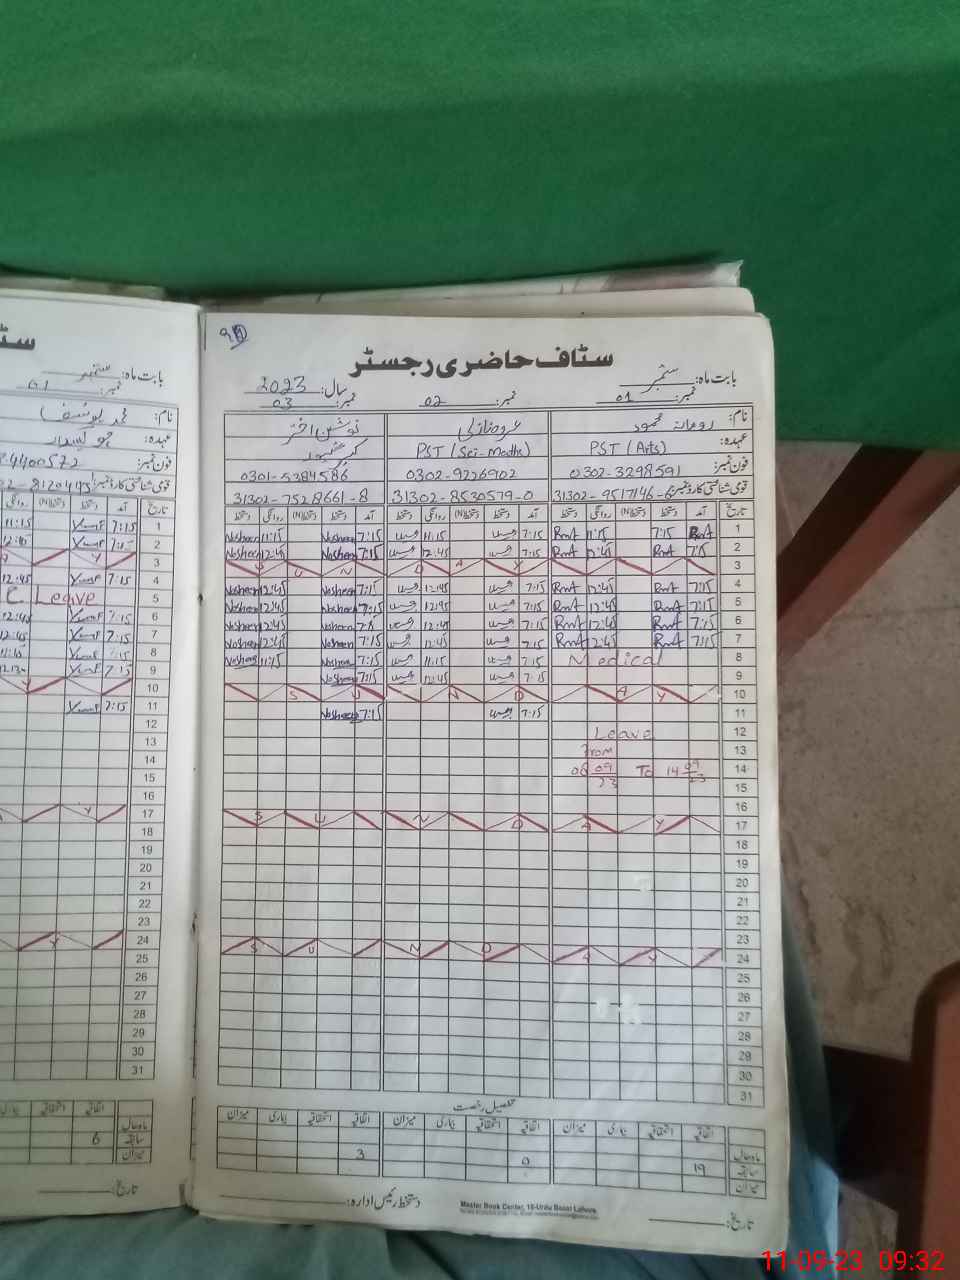 سٹاف حاضری رجسٹر
بابت ماہ: ستمبر
سال: 2023
نمبر: 01 نمبر: 02 نمبر: 03
نام: رومانہ محمود نوشین اختر
عہدہ: PST (Arts) PST (Sci-Math)
فون نمبر: 0302-3298591 0302-9226902 0301-5384586
قومی شناختی کارڈ نمبر: 31302-9517146-6 31302-8530579-0 31302-7528661-8
تاریخ آمد دستخط (N)دستخط روانگی دستخط آمد دستخط (N)دستخط روانگی دستخط آمد دستخط (N)دستخط روانگی دستخط
1 7:15 11:15 7:15 11:15 7:15 Nosheen 11:15 Nosheen
2 7:15 12:45 7:15 12:45 7:15 Nosheen 12:45 Nosheen
3 S U N D A Y
4 7:15 12:45 7:15 12:45 7:15 Nosheen 12:45 Nosheen
5 7:15 12:45 7:15 12:45 7:15 Nosheen 12:45 Nosheen
6 7:15 12:45 7:15 12:45 7:15 Nosheen 12:45 Nosheen
7 7:15 12:45 7:15 12:45 7:15 Nosheen 12:45 Nosheen
8 Medical 7:15 11:15 7:15 Nosheen 11:15 Nosheen
9 7:15 12:45 7:15 Nosheen
10 S U N D A Y
11 7:15 7:15 Nosheen
12 Leave
13 From
14 09 23 To 14 09 23
15
16
17 S U N D A Y
18
19
20
21
22
23
24 S U N D A Y
25
26
27
28
29
30
31
تفصیل رخصت
اتفاقیہ استحقاقیہ بیماری میزان اتفاقیہ استحقاقیہ بیماری میزان اتفاقیہ استحقاقیہ بیماری میزان
ماہ حال
سابقہ 19 0 3
میزان
دستخط رئیس ادارہ:
تاریخ:
Master Book Center, 16-Urdu Bazar Lahore
بابت ماہ: ستمبر
نمبر: 01
نام: محمد یوسف
عہدہ: چوکیدار
فون نمبر:
قومی شناختی کارڈ نمبر:
تاریخ آمد دستخط (N)دستخط روانگی
1 7:15 Yousf 11:15
2 7:15 Yousf 12:45
3 Y
4 7:15 Yousf 12:45
5 C Leave
6 7:15 Yousf 12:45
7 7:15 Yousf 12:45
8 7:15 Yousf 11:15
9 7:15 Yousf 12:30
10 Y
11 7:15 Yousf
12
13
14
15
16
17 Y
18
19
20
21
22
23
24 Y
25
26
27
28
29
30
31
اتفاقیہ استحقاقیہ بیماری
ماہ حال
سابقہ 6
میزان
تاریخ:
11-09-23 09:32